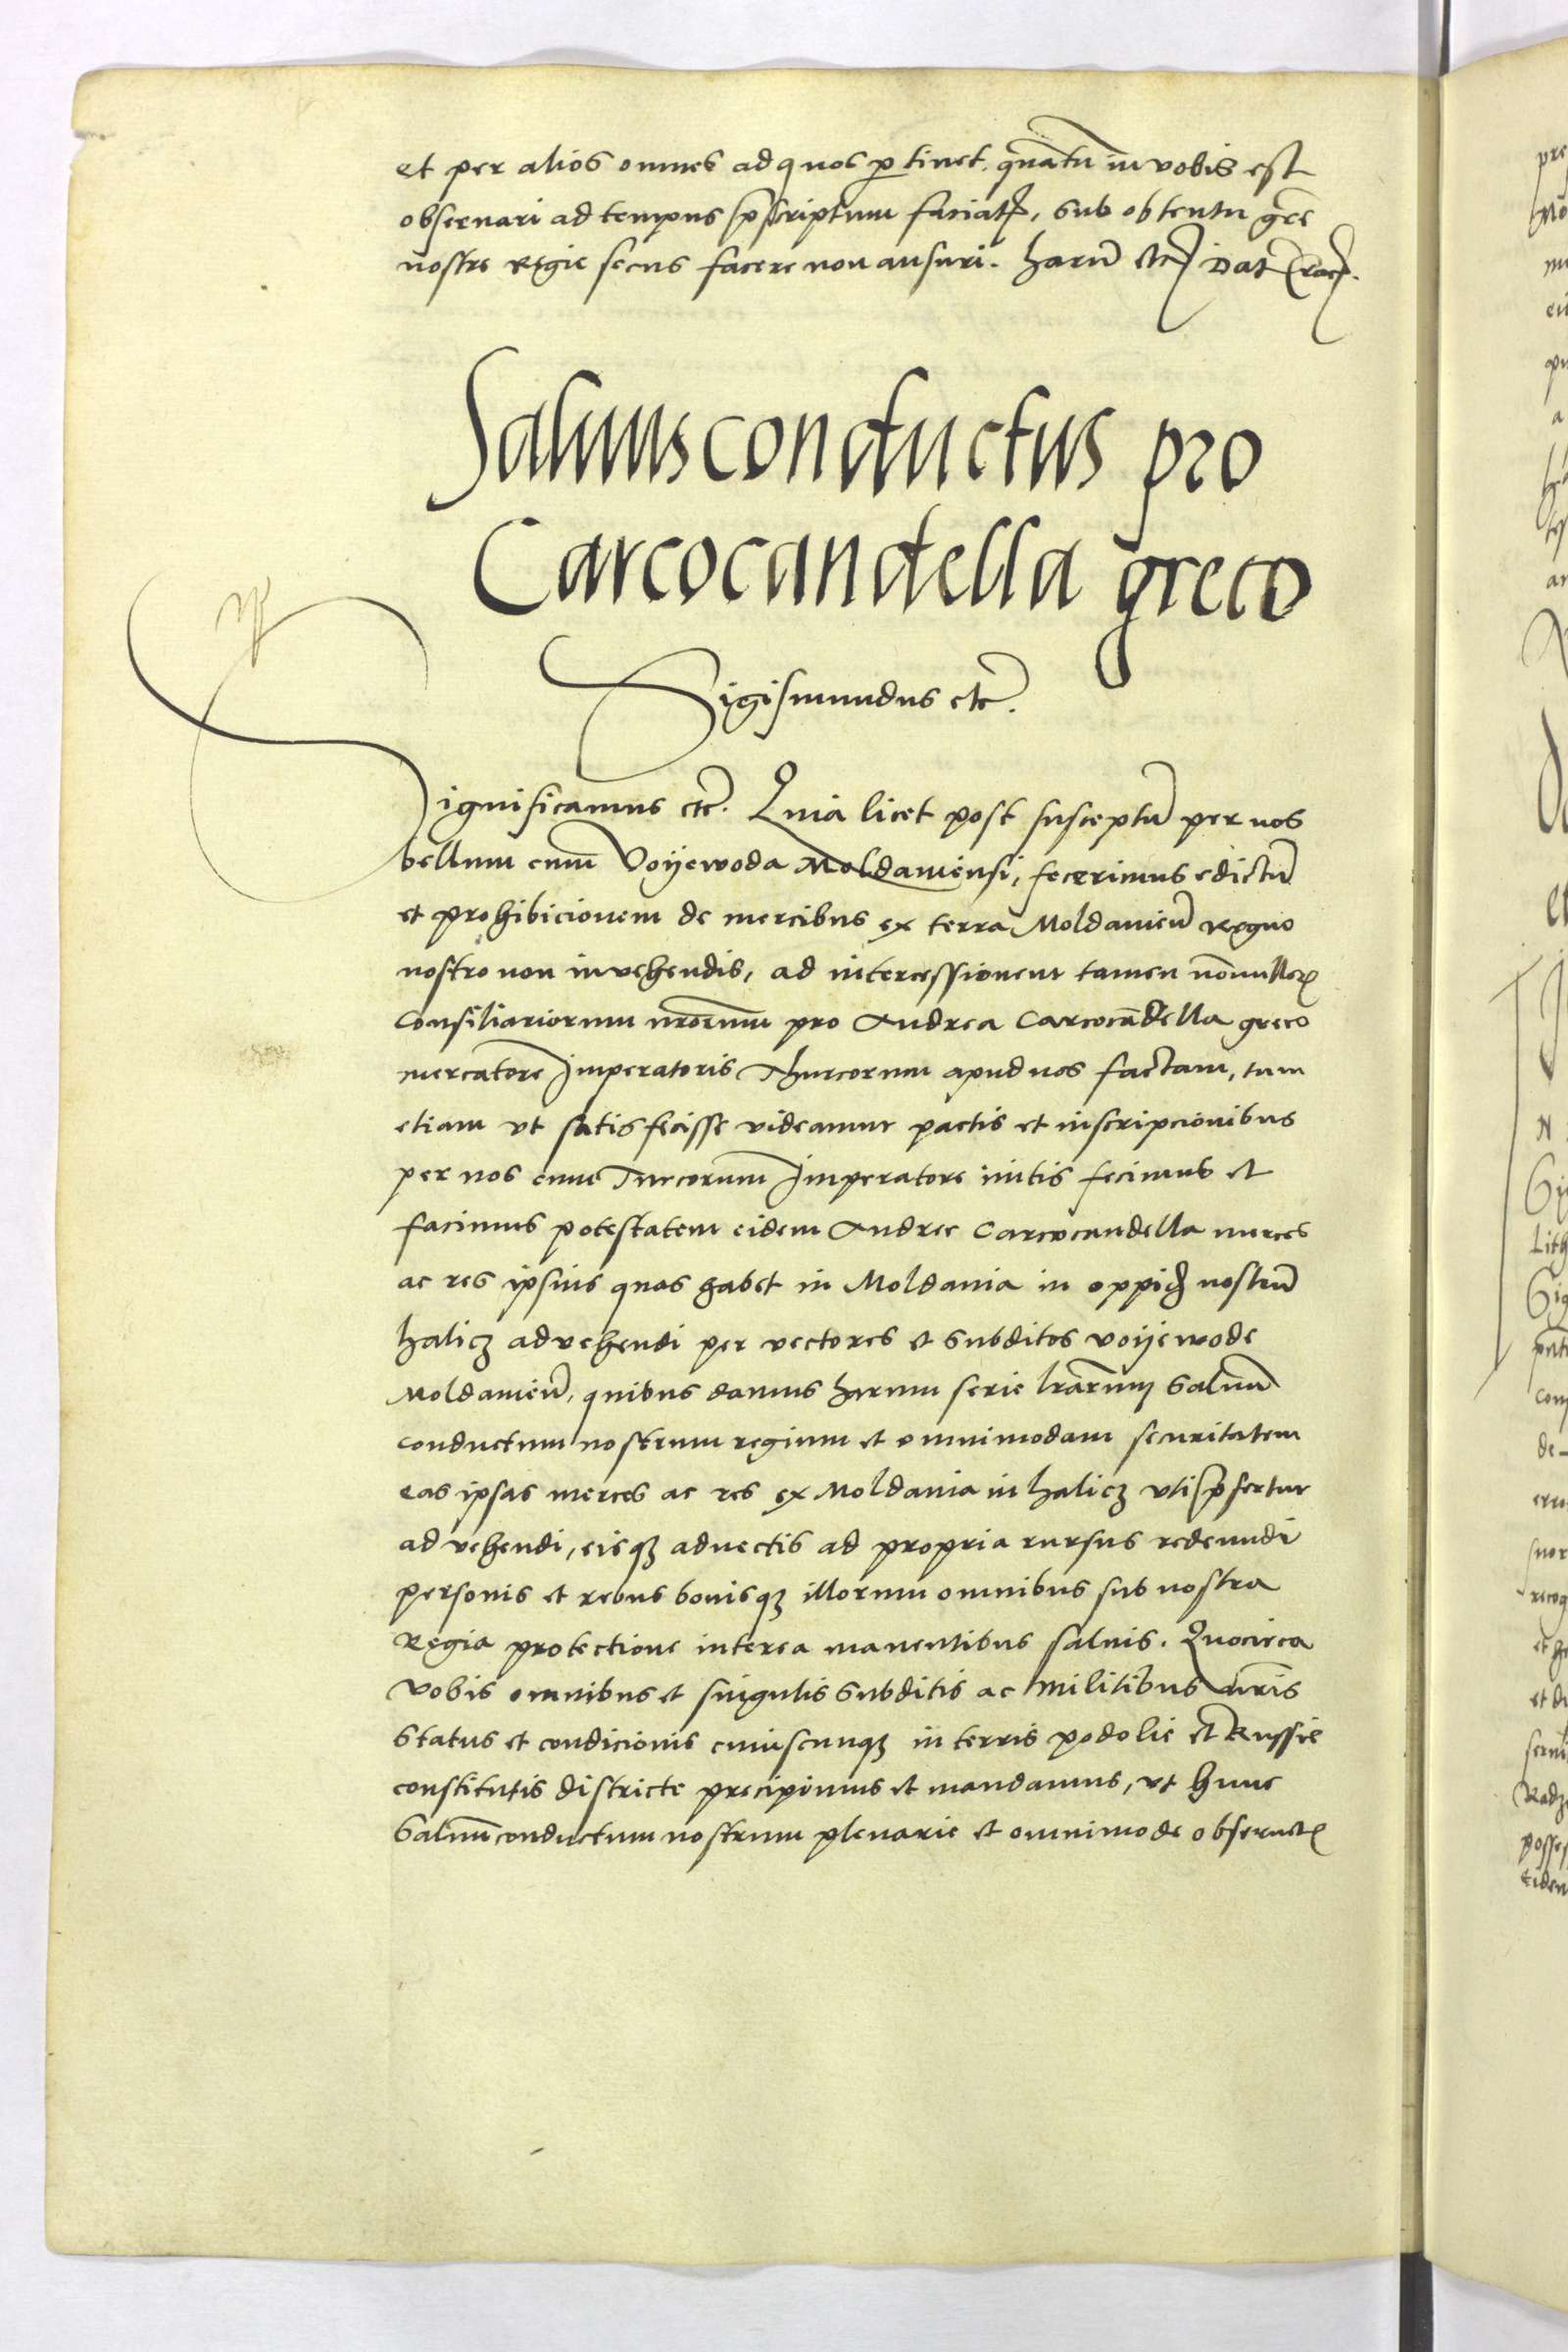 et per alios omnes ad quos ptinet, quātū in vobis est
obseruari ad tempus pscriptum faciatꝭ, sub obtentu grē
nostre Regie secus facere non ausuri. harū etc Dat Crac.
Saluusconductus pro
Carcocandella greco
Sigismundus etc.
Significamus etc. Quia licet post susceptū per nos
bellum cum Voijewoda Moldauiensi, fecerimus edictū
et prohibicionem de mercibus ex terra Moldauieñ Regno
nostro non inuehendis, ad intercessionem tamen nōnulloꝝ
Consiliariorum nrorum pro Andrea Carcocādella greco
mercatore Imperatoris Thurcorum apud nos factam, tum
etiam vt satisfecisse videamur pactis et inscripcionibus
per nos cum Turcorum Imperatore initis fecimus et
facimus potestatem eidem Andree Carcocandella merces
ac res ipsius quas habet in Moldauia in oppid nostrū
halicz aduehendi per vectores et subditos voijewode
Moldauieñ, quibus damus harum serie lrarum Saluū
conductum nostrum regium et omnimodam securitatem
eas ipsas merces ac res ex Moldauia in halicz vti pfertur
aduehendi, eisqȝ aduectis ad propria rursus redeundi
personis et rebus bonisqȝ illorum omnibus sub nostra
Regia protectione interea manentibus saluis. Quocirca
vobis omnibus et singulis subditis ac militibus nris
status et condicionis cuiuscunqȝ in terris podolie et Russie
constitutis districte precipimus et mandamus, vt hunc
Saluūconductum nostrum plenarie et omnimode obseruetꝭ